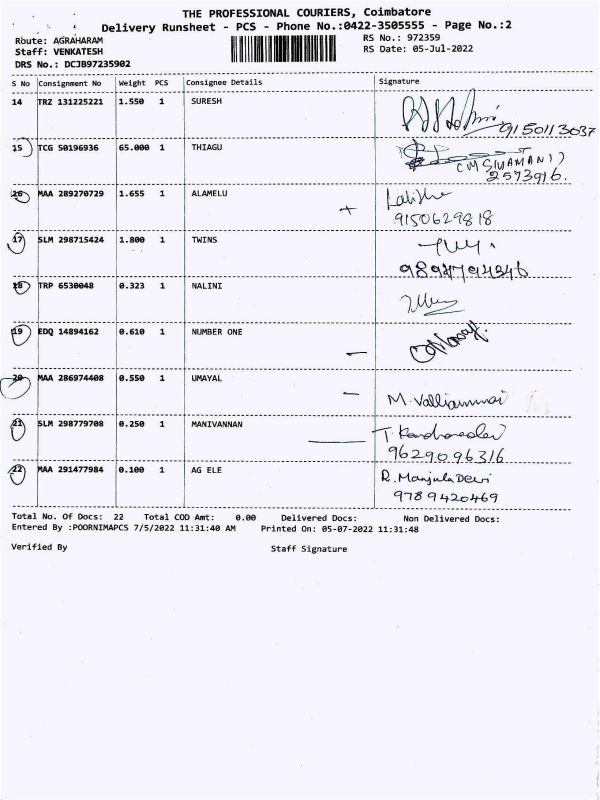 THE PROFESSIONAL COURIERS, Coimbatore
Delivery Runsheet - PCS - Phone No.:0422-3505555 - Page No.:2
Route: AGRAHARAM
RS No.: 972359
Staff: VENKATESH
RS Date: 05-Jul-2022
DRS No.: DCJB97235902
S No Consignment No Weight PCS Consignee Details Signature
14 TRZ 131225221 1.550 1 SURESH
9150113037
15 TCG 50196936 65.000 1 THIAGU
(M SIVAMANI)
2573916.
16 MAA 289270729 1.655 1 ALAMELU
+
9150629818
17 SLM 298715424 1.800 1 TWINS
18 TRP 6530048 0.323 1 NALINI
19 EDQ 14894162 0.610 1 NUMBER ONE
20 MAA 286974408 0.550 1 UMAYAL
M. Valliammai
21 SLM 298779708 0.250 1 MANIVANNAN
9629096316
22 MAA 291477984 0.100 1 AG ELE
R. Manjula Devi
9789420469
Total No. Of Docs: 22 Total COD Amt: 0.00 Delivered Docs: Non Delivered Docs:
Entered By :POORNIMAPCS 7/5/2022 11:31:40 AM Printed On: 05-07-2022 11:31:48
Verified By Staff Signature